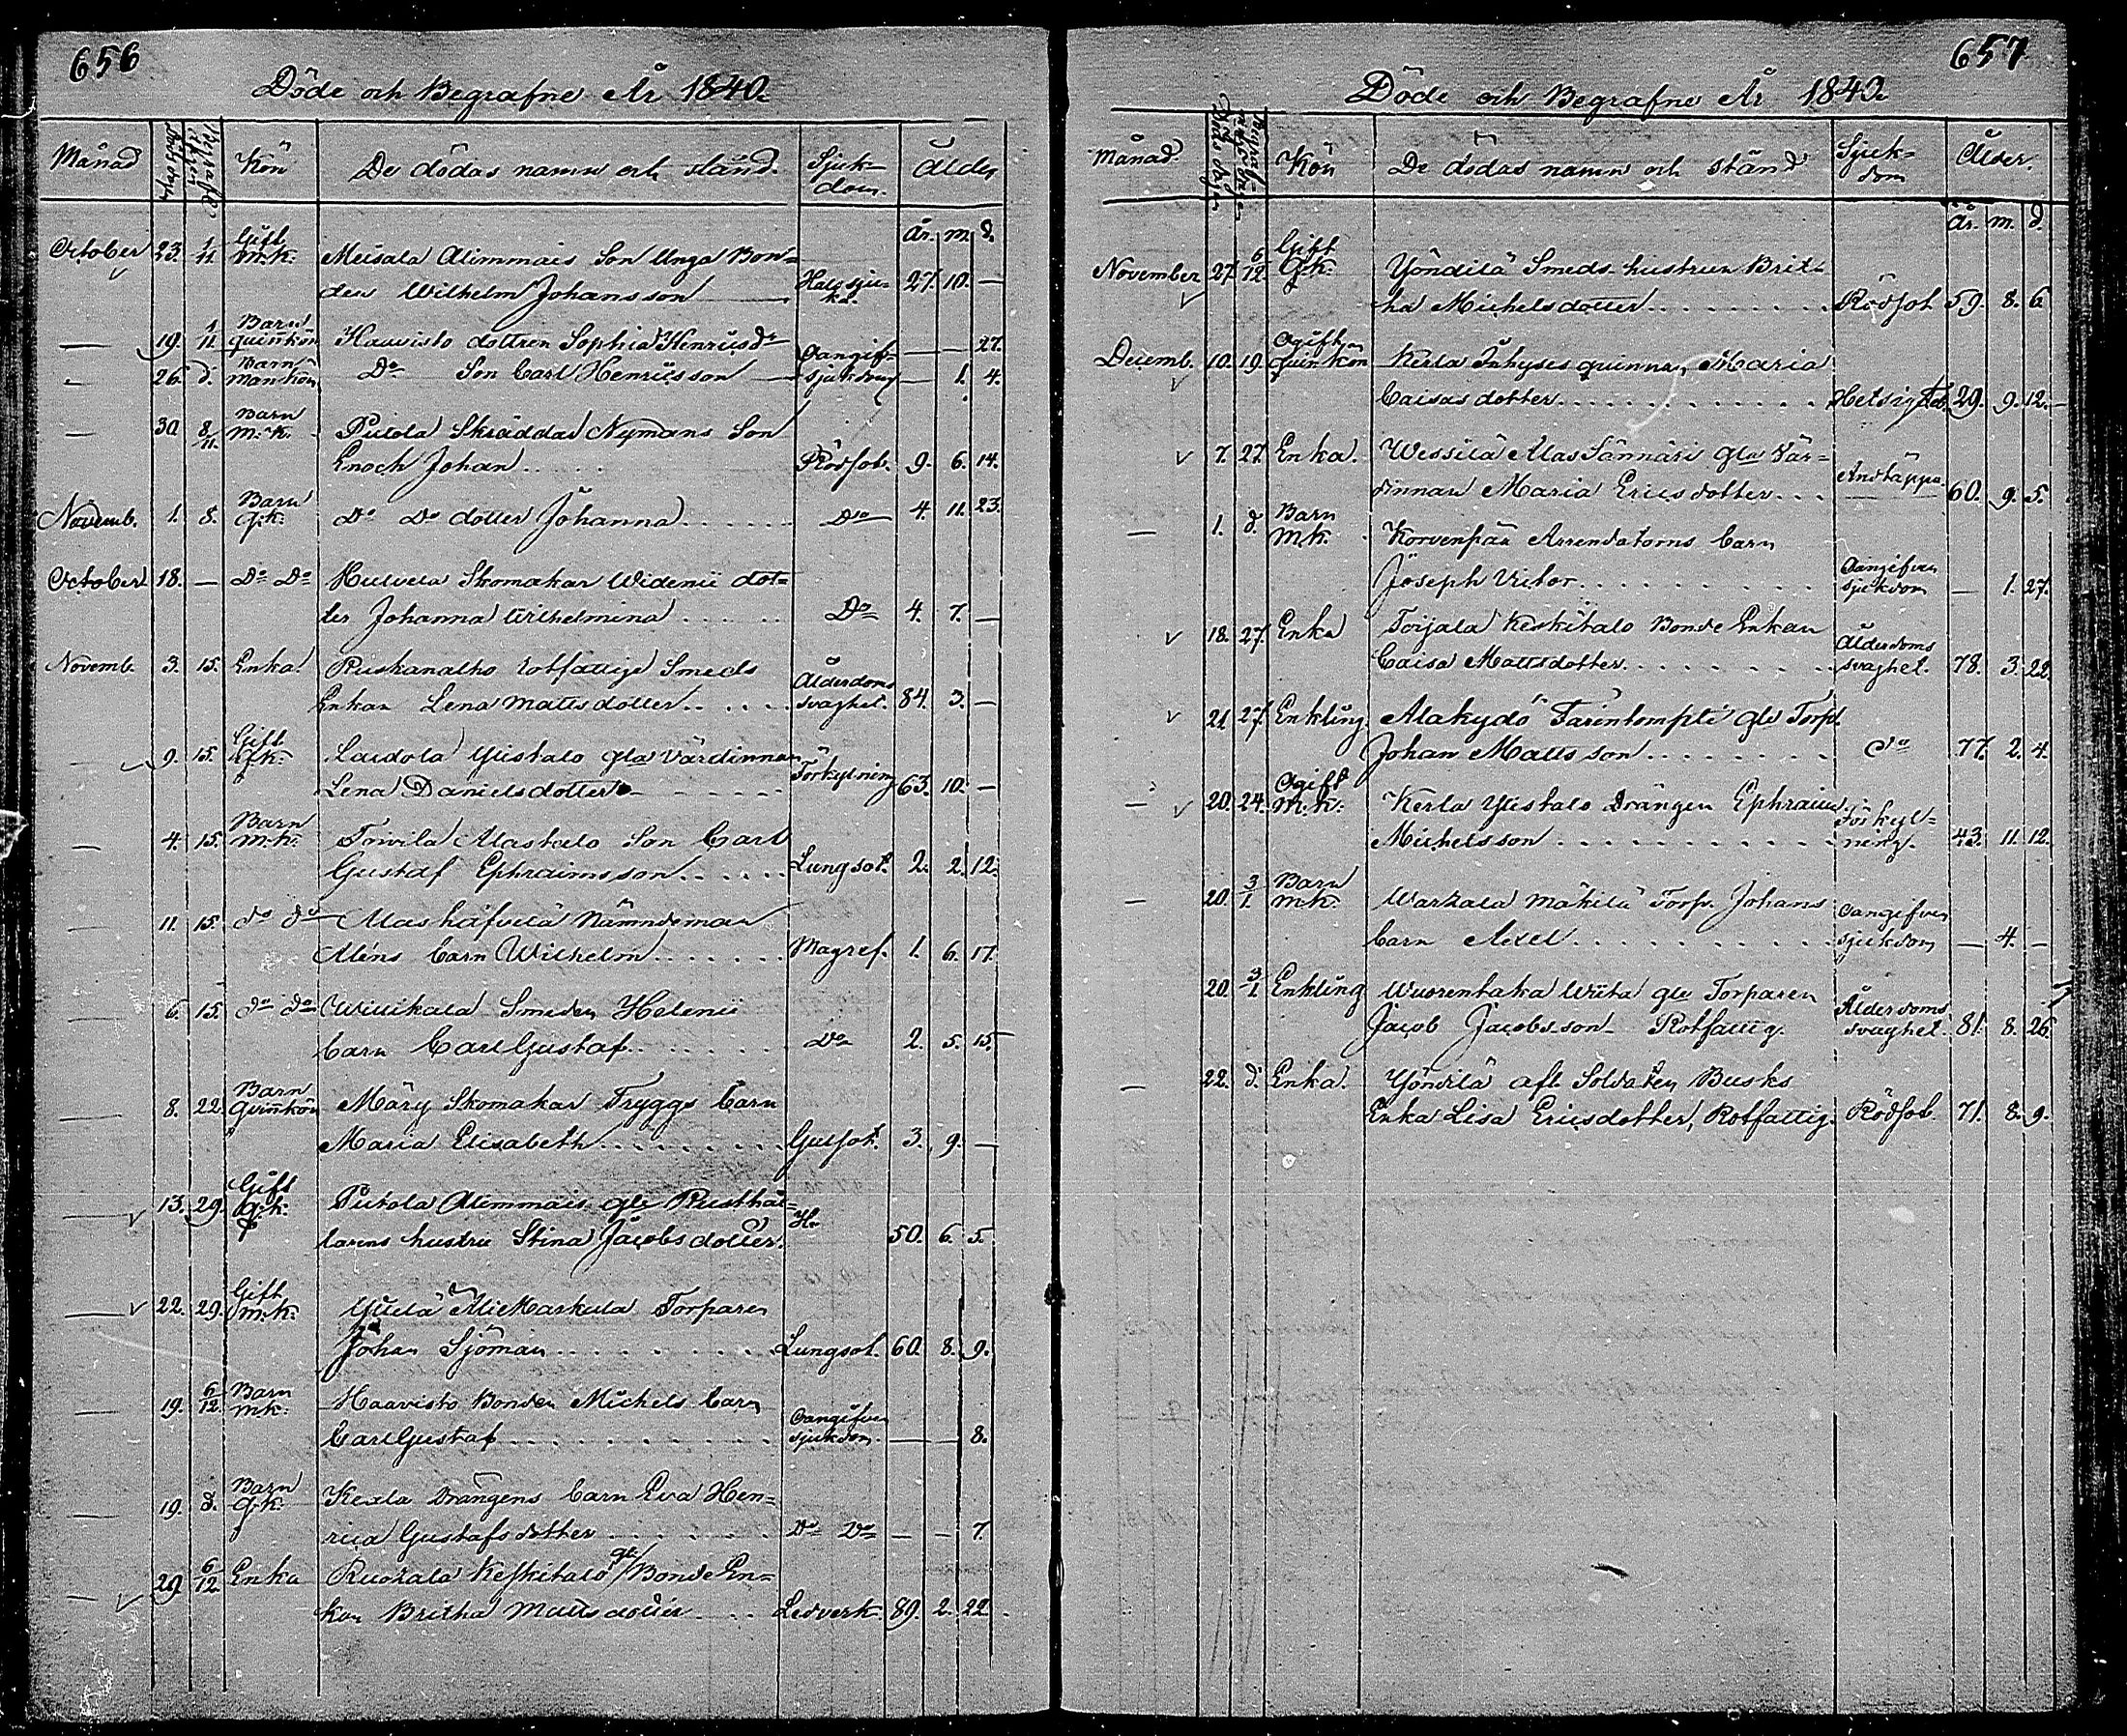 656
Döde och Begrafne År 1840.
Månad Döds dagen Begrafn. Kön De dödas namn och stånd. Sjukdom. Ålder
År. m. d.
October 23. 1/11 Gift m.k. Meisala Alimmais Son Unga Bon=
den Wilhelm Johansson Halssju=ka. 27. 10. —
— 19. 1/11 Barn quinkön Haavisto dottren Sophia Henricsdr — — 27.
- 26. d. Barn mankön Do Son Carl Henricsson Oangif. sjukdom — 1. 4.
— 30. 8/11. Barn m.k. Putola Skräddar Nymans Son
Enoch Johan..... Rödsot. 9. 6. 14.
Novemb. 1. 8. Barn q.k. Do Do dotter Johanna...... Do 4. 11. 23.
October 18. — Do Do Skomakar Widenii dot=
ter Johanna Wilhelmina...... Do 4. 7. —
Novemb. 3. 15. Enka Rotfattige Smeds
Enkan Lena Mattsdotter...... Ålderdoms svaghet. 84. 3. —
— 9. 15. Gift q.k. Yistalo gla Värdinnan
Lena Danielsdotter Förkylning 63. 10. —
— 4. 15. Barn m.k. Toivila Alastalo Son Carl
Gustaf Ephraimsson...... Lungsot. 2. 2. 12.
— 11. 15. do do Nämndeman
Aléns barn Wilhelm....... Magref. 1. 6. 17.
— 6. 15. do do Willikala Smeden Helenii
barn Carl Gustaf....... Do 2. 5. 15.
— 8. 22. Barn quinkön Märy Skomakar Tryggs barn
Maria Elisabeth........ Gulsot. 3. 9. —
— 13. 29. Gift q.k. Putola Alimmais gle Rusthål=
larens hustru Stina Jacobsdotter. 50. 6. 5.
— 22. 29. Gift m.k. Torparen
Johan Sjöman.......... Lungsot. 60. 8. 9.
— 19. 6/12. Barn m.k. Haavisto Bonden Michels barn
Carl Gustaf........... Oangifven sjukdom. — — 8.
— 19. d. Barn q.k. Kerla Drängens barn Eva Hen=
rica Gustafsdotter...... Do Do — — 7.
— 29. 6/12 Enka Keskitalo gle Bonde En=
kan Britha Mattsdotter.... Ledverk. 89. 2. 22.
657
Döde och Begrafne År 1840.
Månad. Döds dagen Kön De dödas namn och stånd Sjuk=dom Ålder.
År. m. d.
November 27. 6/12. Gift Q.k. Yöndilä Smeds hustrun Brit=
ha Michelsdotter......... Rödsot 59. 8. 6
Decemb. 10. 19. Ogift quinkön Kerla Inhyses quinnan Maria
Caisasdotter............. Hetsig feb. 29. 9. 12.
7. 27. Enka. Wessilä Alas Sännäri gla Vär=
dinnan Maria Ericsdotter... Andtäppa 60. 9. 5.
— 1. d. Barn M.k. Korvenpää Arrendatorns barn
Joseph Victor............ Oangifven sjukdom — 1. 27.
18. 27. Enka Toijala Keskitalo Bonde Enkan
Caisa Mattsdotter......... Ålderdoms svaghet. 78. 3. 22.
21. 27. Enkling Alakydö gle Torp.
Johan Mattsson......... do 77. 2. 4.
— 20. 24. Ogift M.k. Kerla Ylistalo Drängen Ephraim
Michelsson............ Förkyl=ning. 43. 11. 12.
— 20. 3/1. Barn m.k. Warkala Mäkilä Torp. Johans
barn Axel........... Oangifven sjukdom — 4. —
20. 3/1. Enkling Wuorentaka Wiita gle Torparen
Jacob Jacobsson Rotfattig. Ålderdoms svaghet. 81. 8. 26.
— 22. d. Enka. Yöndilä afl. Soldaten Busks
Enka Lisa Ericsdotter, Rotfattig. Rödsot. 71. 8. 9.